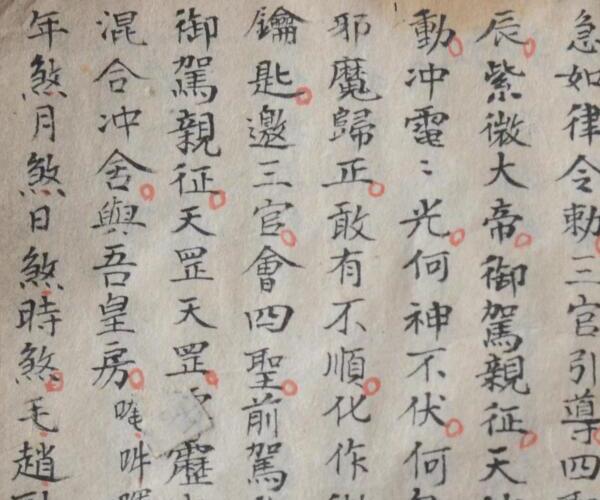 急如律令勅三官引導四
辰紫微大帝御駕親征天
動冲電〻光何神不伏何
邪魔歸正敢有不順化作
鑰匙邀三官會四聖前駕
御駕親征天罡天罡靂
混合冲舍與吾皇房唵吽
年煞月煞日煞時煞毛趙